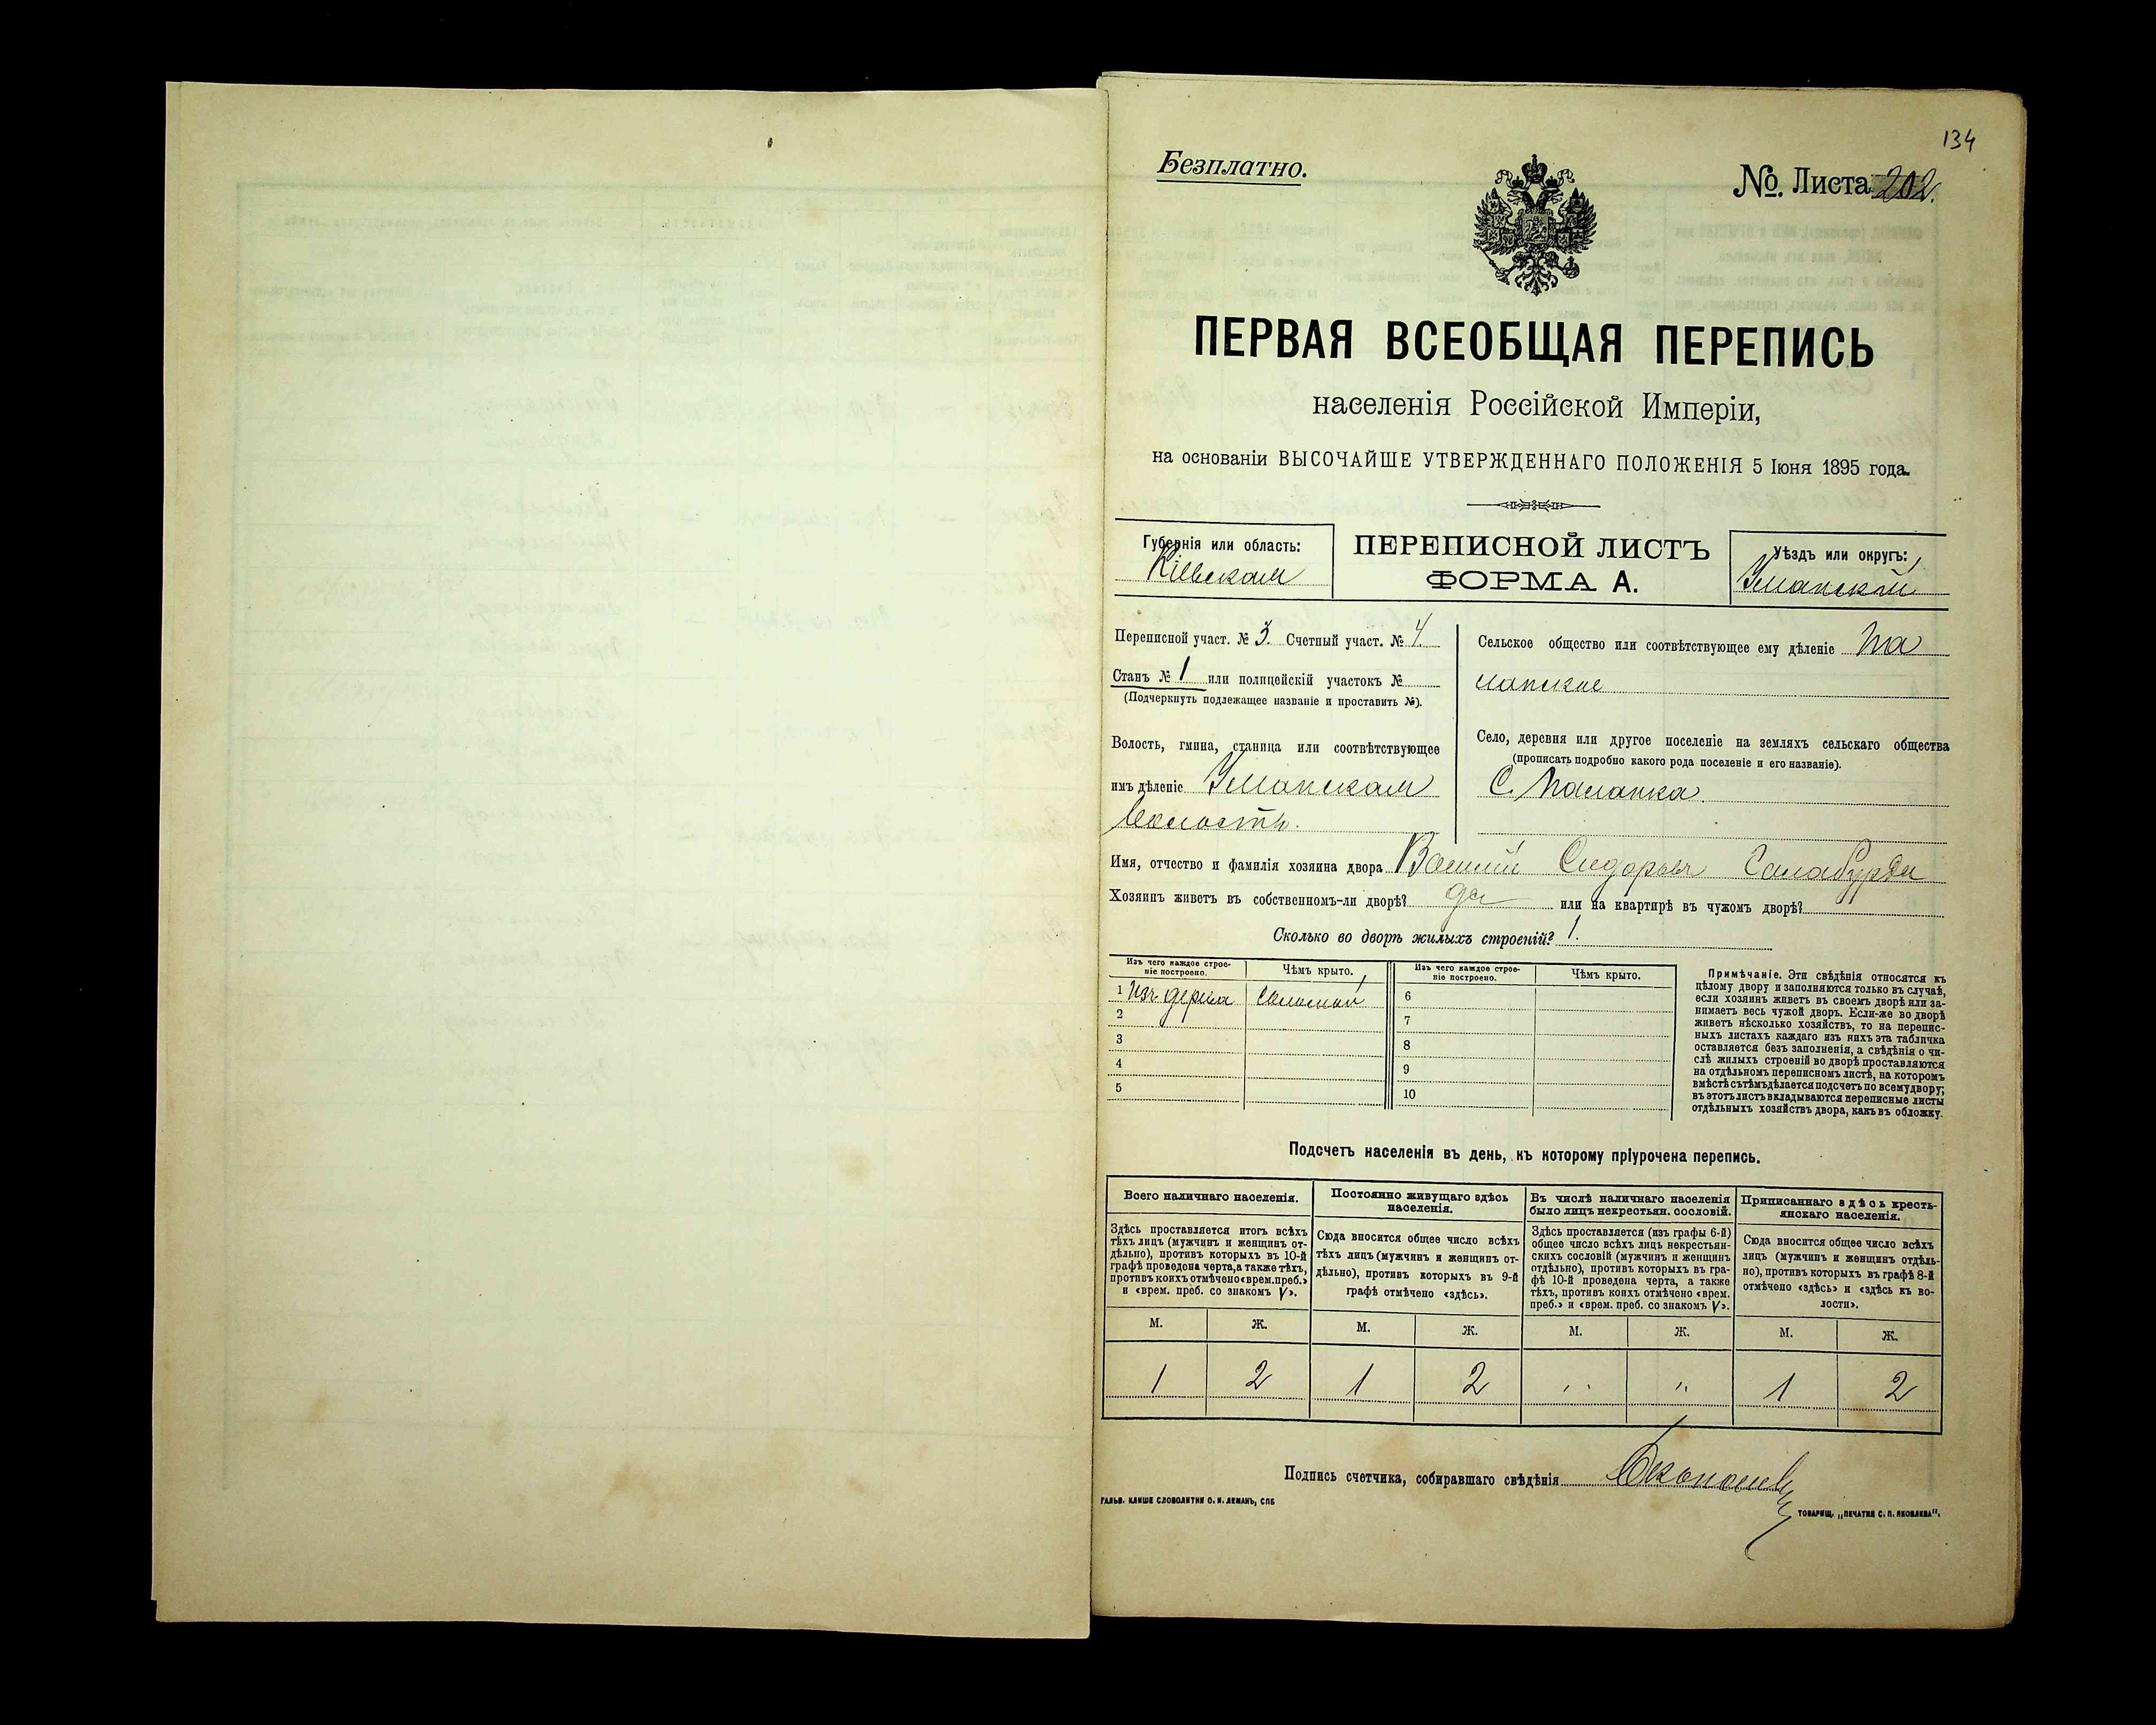 134
Безплатно.
№ Листа 202.
ПЕРВАЯ ВСЕОБЩАЯ ПЕРЕПИСЬ
населенія Россійской Имперіи,
на основаніи ВЫСОЧАЙШЕ УТВЕРЖДЕННАГО ПОЛОЖЕНІЯ 5 Іюня 1895 года.
Губернія или область:
Кіевская
ПЕРЕПИСНОЙ ЛИСТЪ
ФОРМА А.
Уѣздъ или округъ:
Уманскій
Переписной участ. № 3. Счетный участ. № 4.
Станъ № 1 или полицейскій участокъ №
(Подчеркнуть подлежащее названіе и проставить №).
Волость, гмина, станица или соотвѣтствующее
имъ дѣленіе Уманская
волость.
Сельское общество или соотвѣтствующее ему дѣленіе Па
ланское
Село, деревня или другое поселеніе на земляхъ сельскаго общества
(прописать подробно какого рода поселеніе и его названіе).
С. Паланка.
Имя, отчество и фамилія хозяина двора Василій Сидоровъ Салабурда
Хозяинъ живетъ въ собственномъ-ли дворѣ? да или на квартирѣ въ чужомъ дворѣ?
Сколько во дворѣ жилыхъ строеній? 1.
Изъ чего каждое строе-
ніе построено.
Чѣмъ крыто.
Изъ чего каждое строе-
ніе построено.
Чѣмъ крыто.
1 Изъ дерева соломой 6
2 7
3 8
4 9
5 10
Примѣчаніе. Эти свѣдѣнія относятся къ
цѣлому двору и заполняются только въ случаѣ,
если хозяинъ живетъ въ своемъ дворѣ или за-
нимаетъ весь чужой дворъ. Если-же во дворѣ
живетъ нѣсколько хозяйствъ, то на перепис-
ныхъ листахъ каждаго изъ нихъ эта табличка
оставляется безъ заполненія, а свѣдѣнія о чи-
слѣ жилыхъ строеній во дворѣ проставляются
на отдѣльномъ переписномъ листѣ, на которомъ
вмѣстѣ съ тѣмъ дѣлается подсчетъ по всему двору;
въ этотъ листъ вкладываются переписные листы
отдѣльныхъ хозяйствъ двора, какъ въ обложку.
Подсчетъ населенія въ день, къ которому пріурочена перепись.
Всего наличнаго населенія.
Здѣсь проставляется итогъ всѣхъ
тѣхъ лицъ (мужчинъ и женщинъ от-
дѣльно), противъ которыхъ въ 10-й
графѣ проведена черта, а также тѣхъ,
противъ коихъ отмѣчено «врем. преб.»
и «врем. преб. со знакомъ V».
Постоянно живущаго здѣсь
населенія.
Сюда вносится общее число всѣхъ
тѣхъ лицъ (мужчинъ и женщинъ от-
дѣльно), противъ которыхъ въ 9-й
графѣ отмѣчено «здѣсь».
Въ числѣ наличнаго населенія
было лицъ некрестьян. сословій.
Здѣсь проставляется (изъ графы 6-й)
общее число всѣхъ лицъ некрестьян-
скихъ сословій (мужчинъ и женщинъ
отдѣльно), противъ которыхъ въ гра-
фѣ 10-й проведена черта, а также
тѣхъ, противъ коихъ отмѣчено «врем.
преб.» и «врем. преб. со знакомъ V».
Приписаннаго здѣсь кресть-
янскаго населенія.
Сюда вносится общее число всѣхъ
лицъ (мужчинъ и женщинъ отдѣль-
но), противъ которыхъ въ графѣ 8-й
отмѣчено «здѣсь» и «здѣсь къ во-
лости».
М. Ж. М. Ж. М. Ж. М. Ж.
1 2 1 2 " " 1 2
Подпись счетчика, собиравшаго свѣдѣнія
ГАЛЬВ. КЛИШЕ СЛОВОЛИТНИ О. И. ЛЕМАНЪ, СПБ
ТОВАРИЩ. „ПЕЧАТНЯ С. П. ЯКОВЛЕВА".